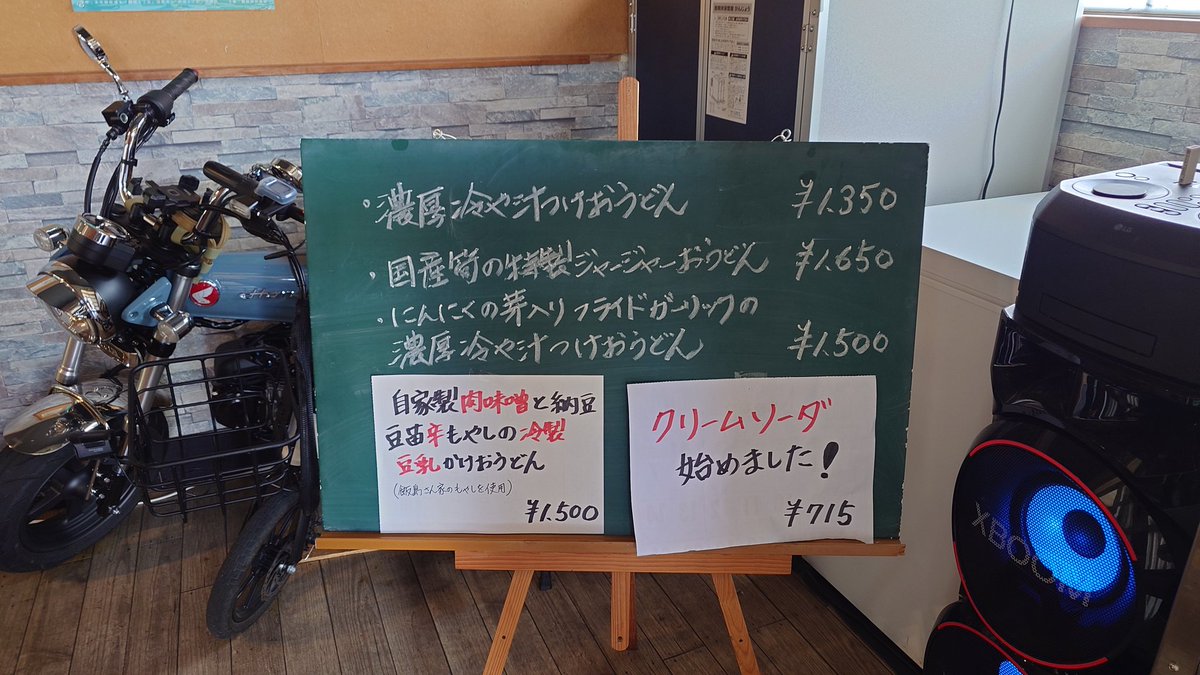 ・濃厚冷や汁つけおうどん ¥1.350
・国産筍の特製ジャージャーおうどん ¥1.650
・にんにくの芽入りフライドガーリックの
濃厚冷や汁つけおうどん ¥1.500
自家製肉味噌と納豆
豆苗辛もやしの冷製
豆乳かけおうどん
(飯島さん家のもやしを使用)
¥1.500
クリームソーダ
始めました!
¥715
LG
XBOOM